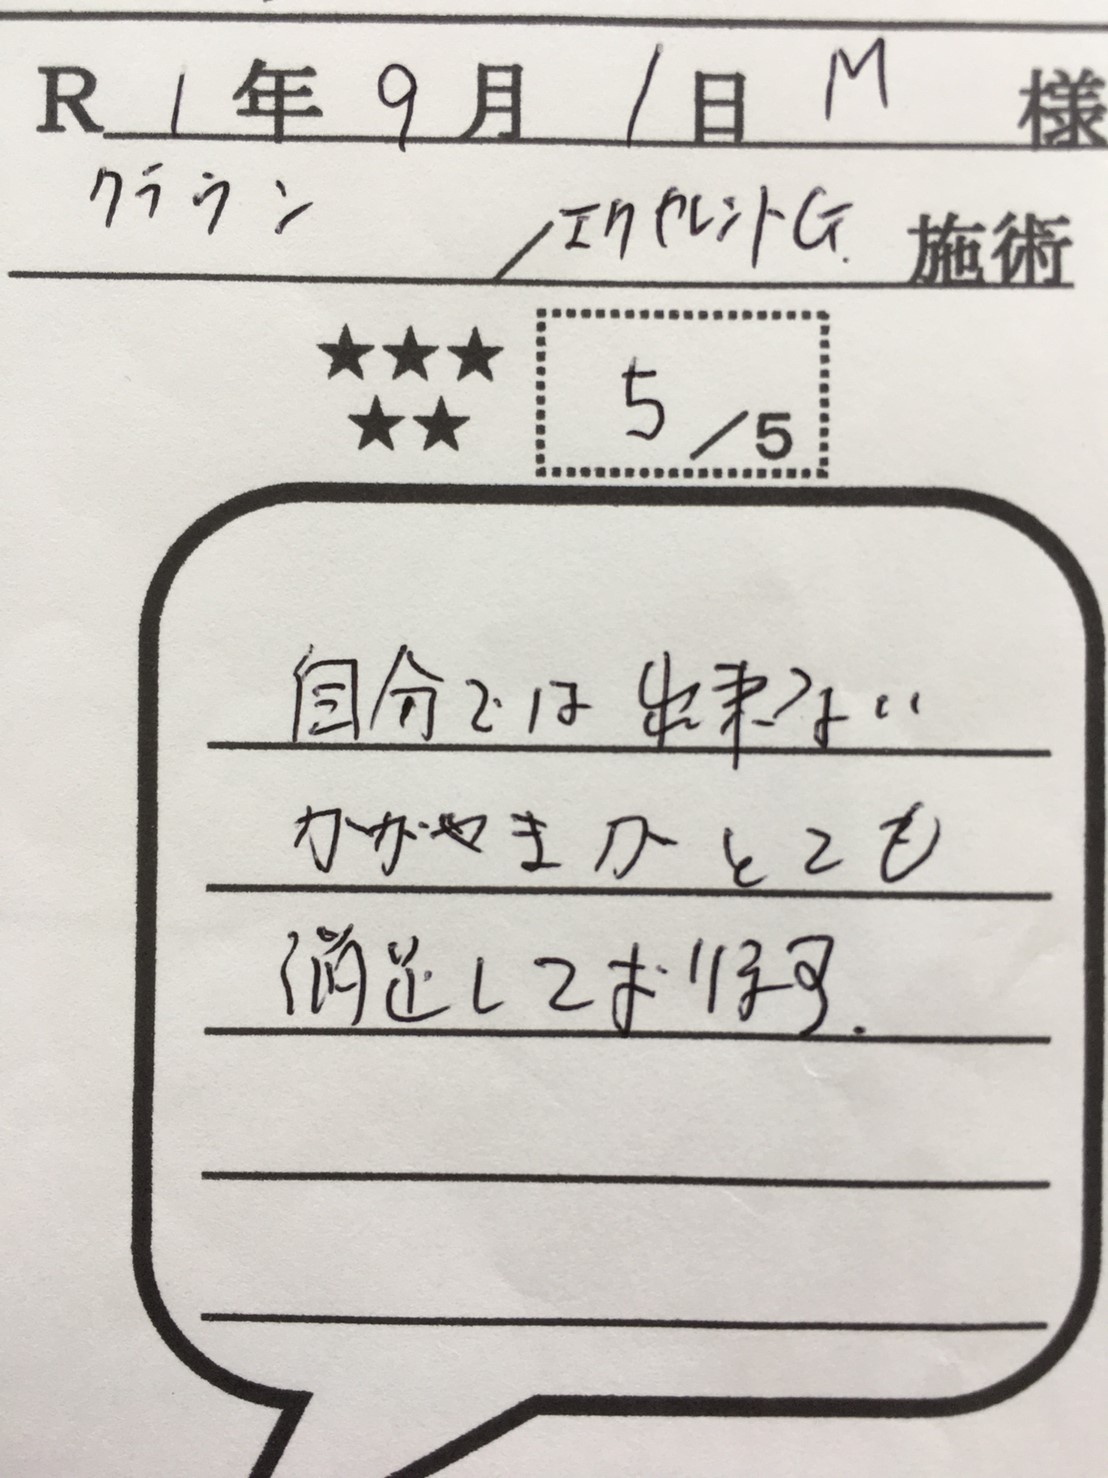 R 1年 9月 1日 M 様
クラウン / エクセレントG. 施術
★★★
★★
5/5
自分では出来ない
かがやきがとても
満足しております.